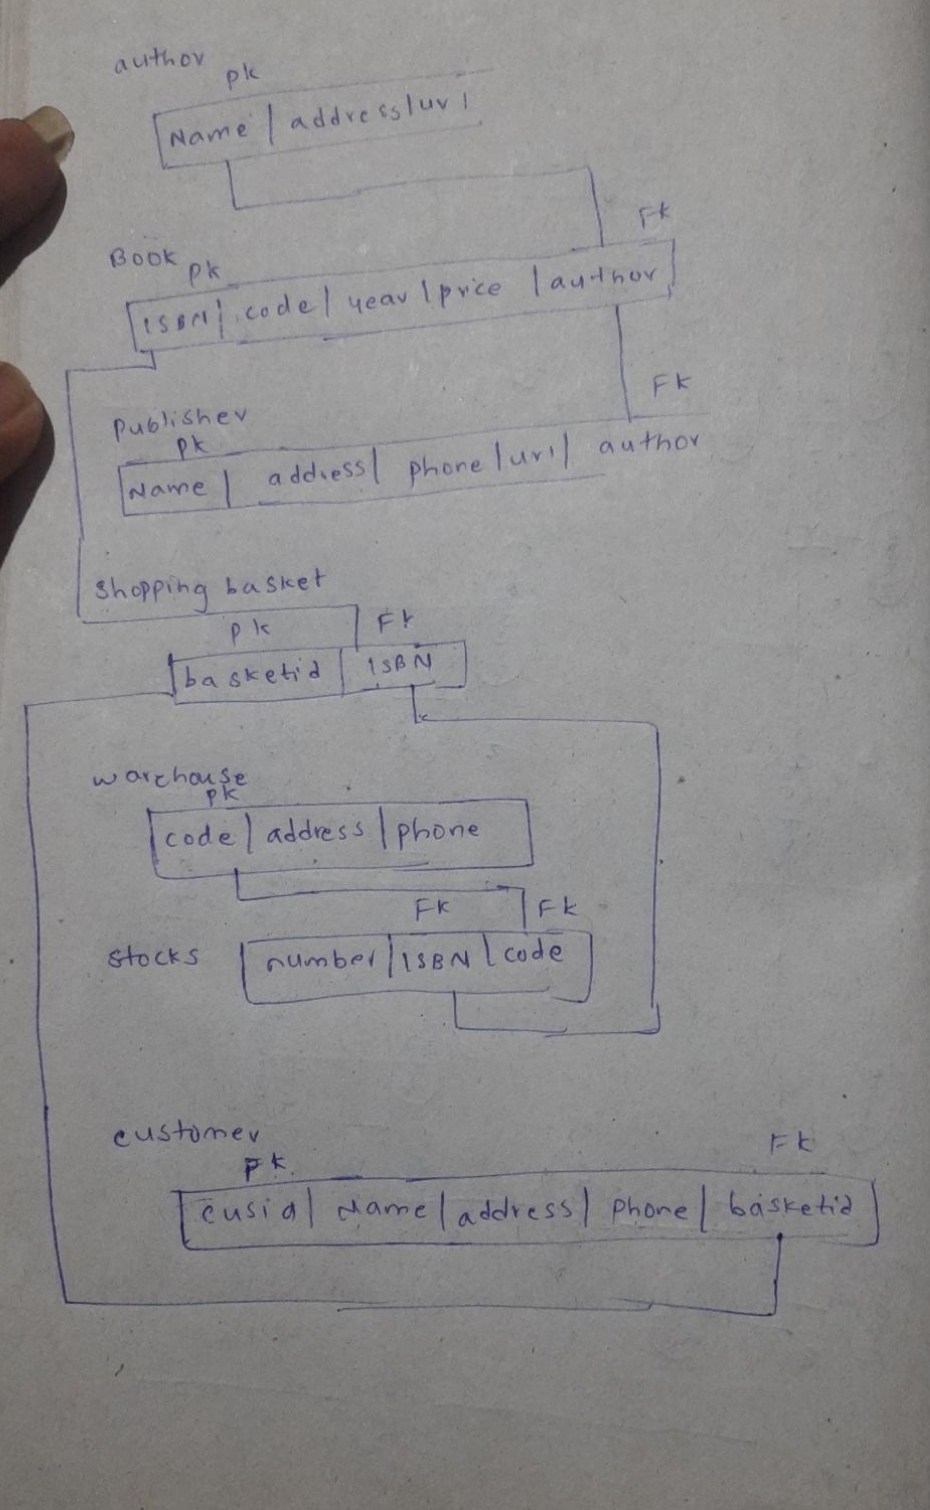 author
pk
Name | address | url
FK
Book
pk
ISBN | code | year | price | author
FK
Publisher
pk
Name | address | phone | url | author
shopping basket
pk FK
basketid | ISBN
warehouse
pk
code | address | phone
FK FK
stocks number | ISBN | code
customer
FK
pk.
cusid | Name | address | phone | basketid